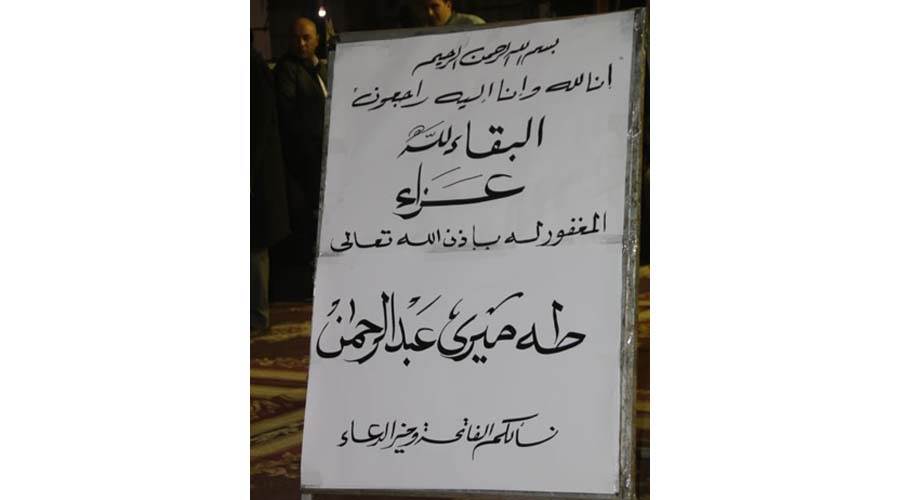 بسم الله الرحمن الرحيم
انا لله وانا اليه راجعون
البقاء لله
عزاء
المغفور له باذن الله تعالى
طه ميرى عبد الرحمن
نسألكم الفاتحة وخير الدعاء